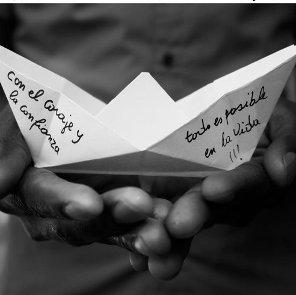 con el coraje y
la confianza
todo es posible
en la vida
!!!